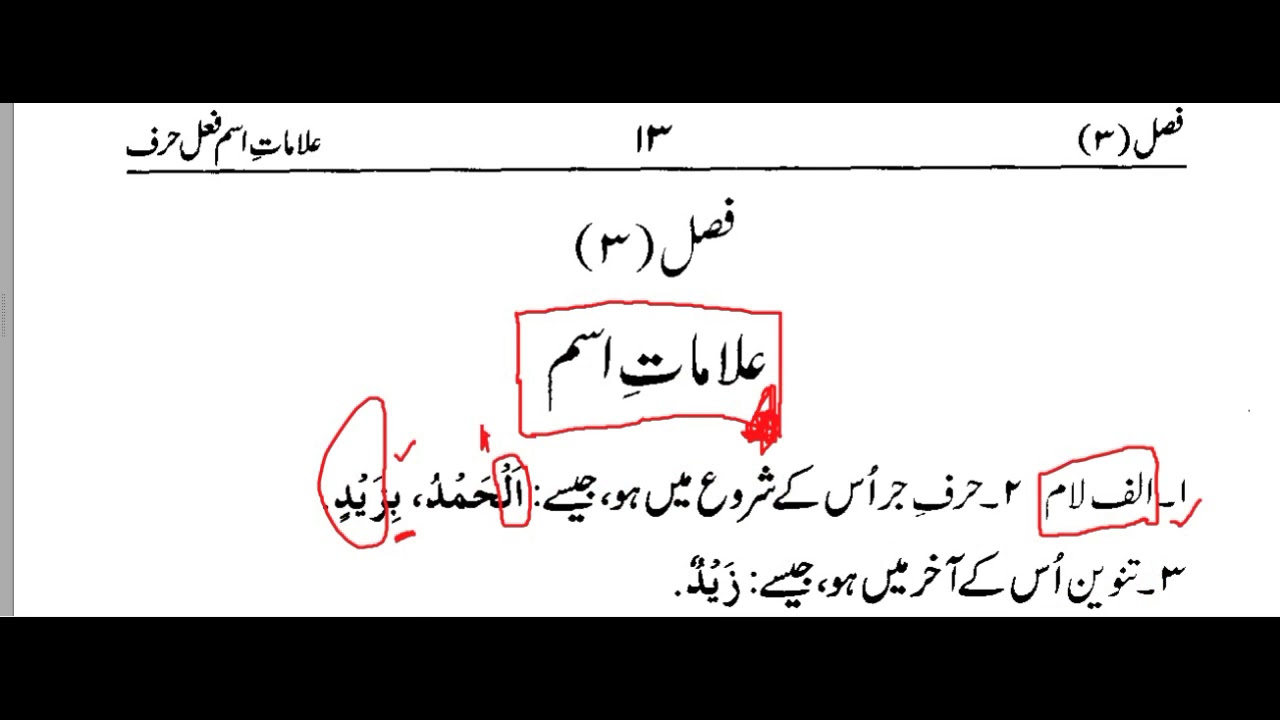 فصل (۳) ۱۳ علاماتِ اسم فعل حرف
فصل (۳)
علاماتِ اسم
۱۔ الف لام ۲۔ حرفِ جر اُس کے شروع میں ہو، جیسے: اَلْحَمْدُ، بِزَيْدٍ.
۳۔ تنوین اُس کے آخر میں ہو، جیسے: زَيْدٌ.